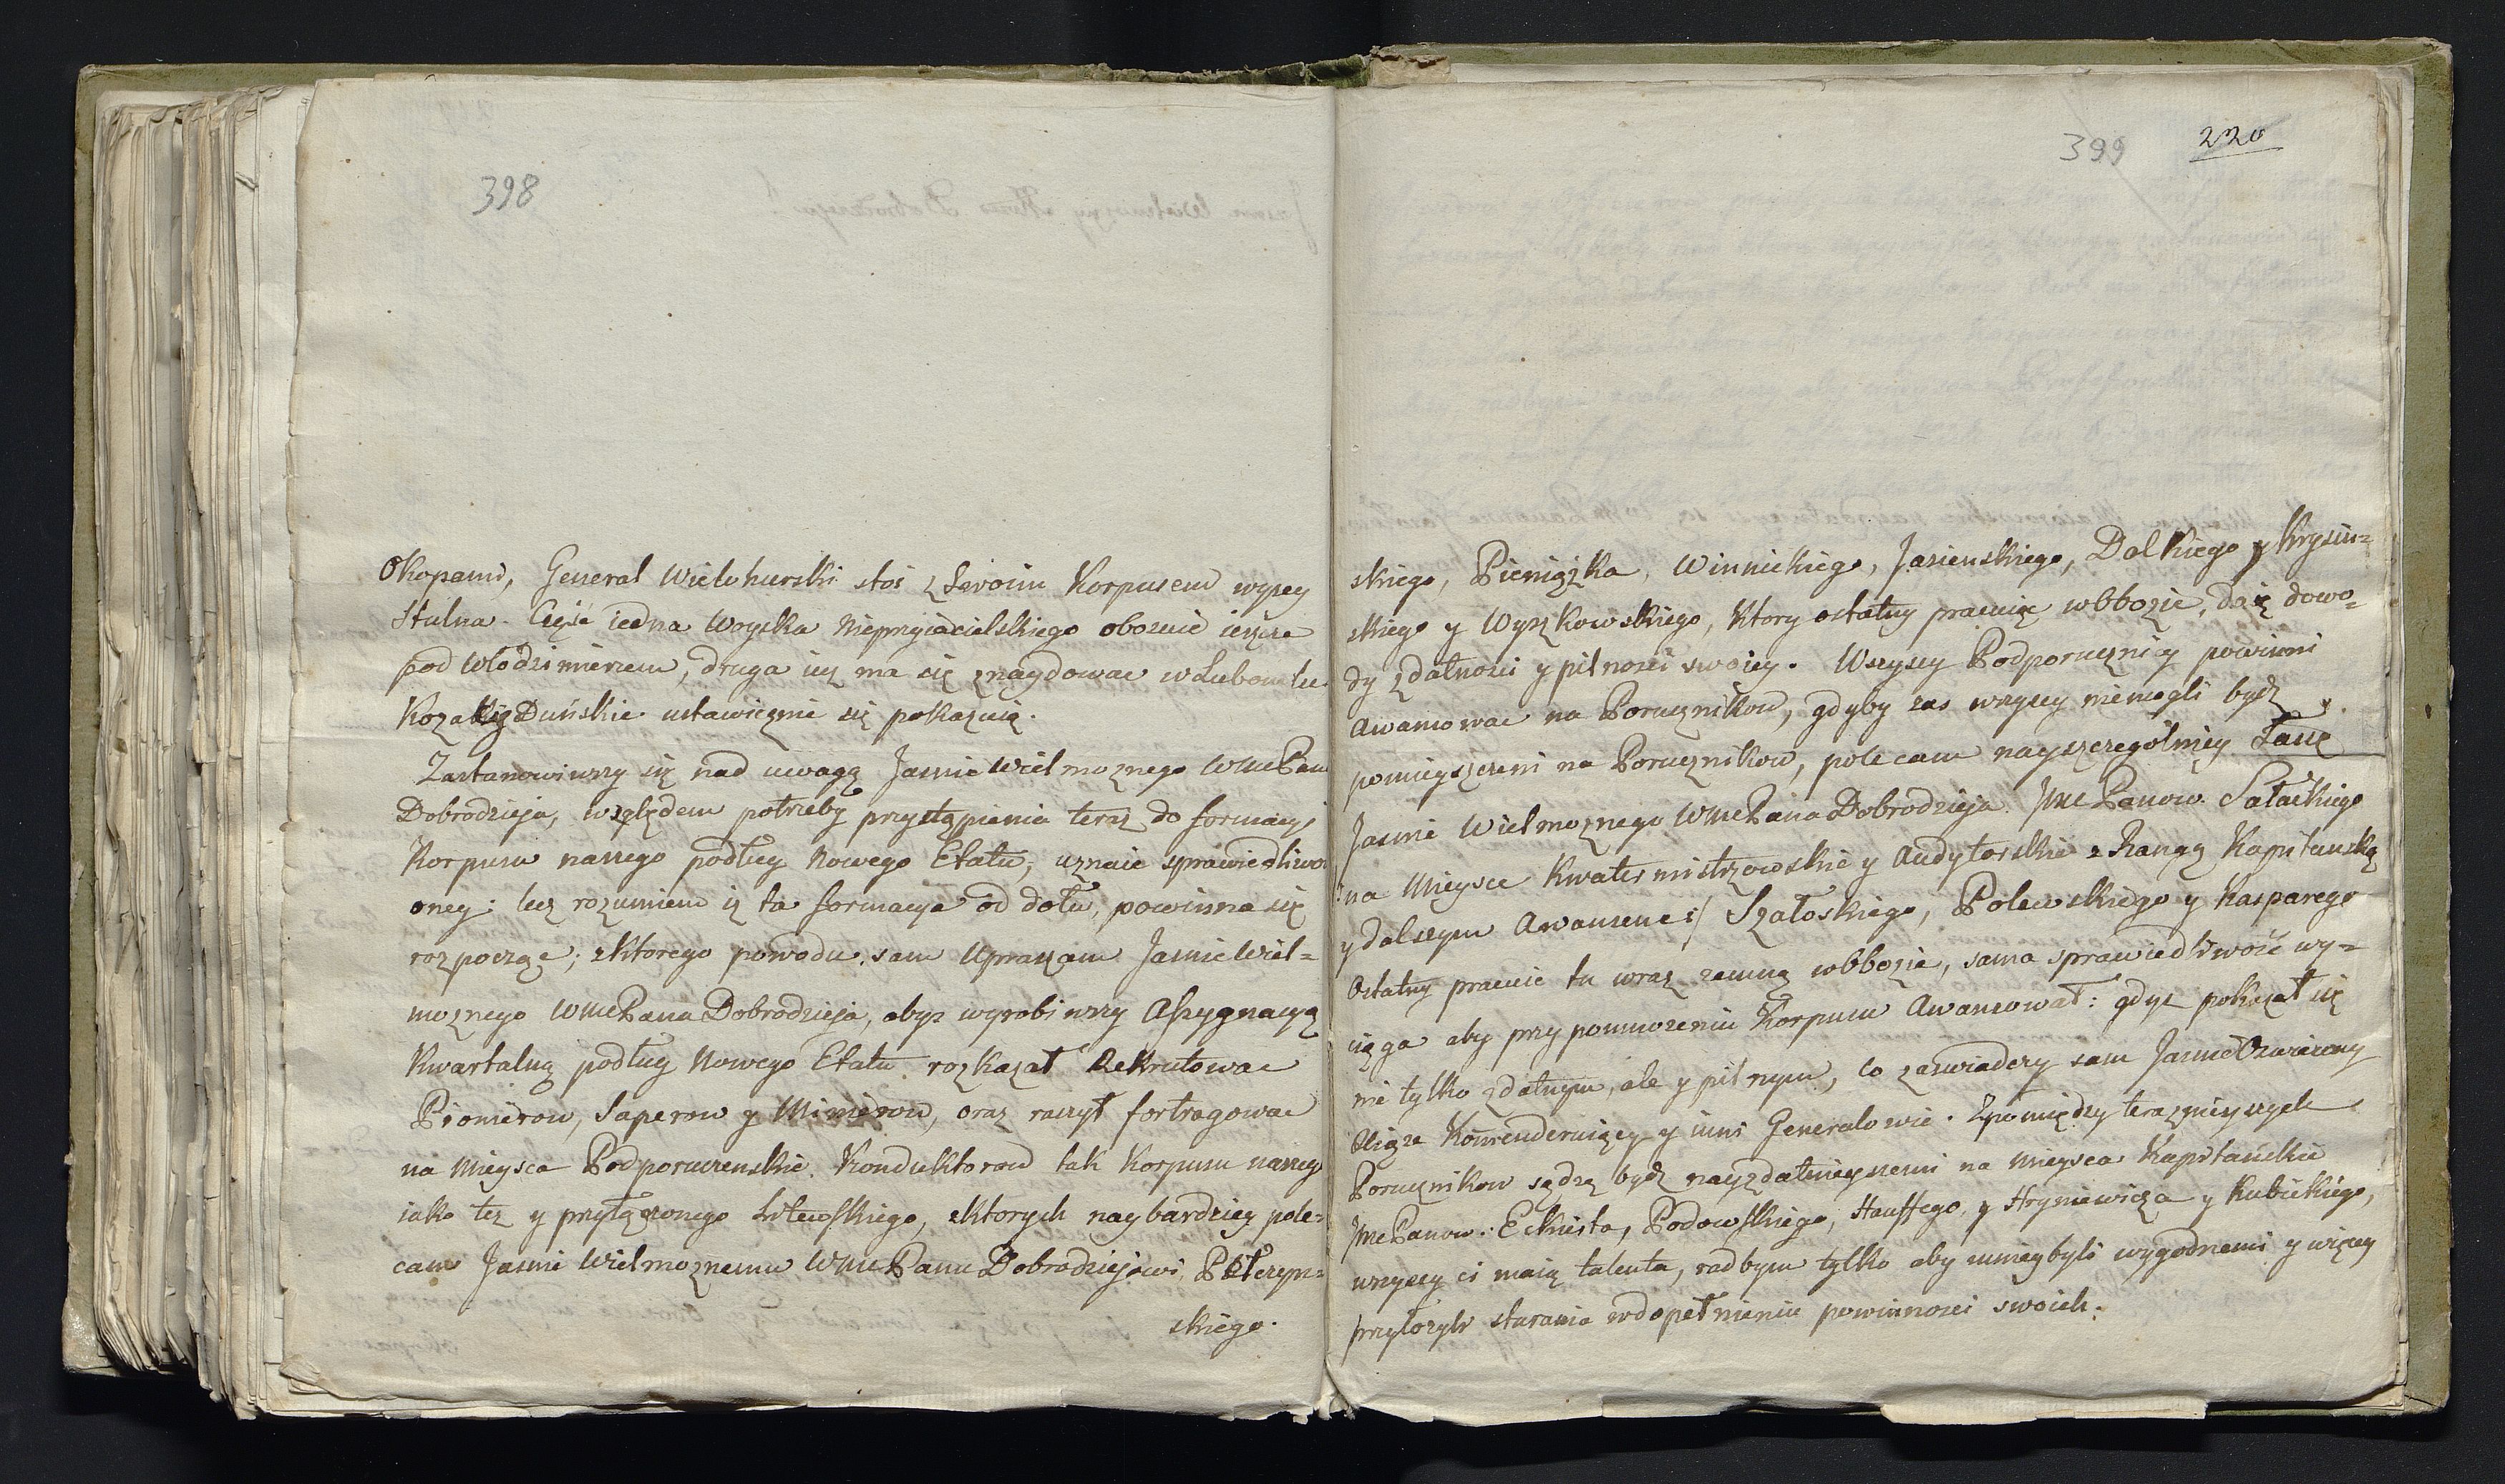 398
Okopami, General Wielohurski stoi z Swoim Korpusem wyzey
Stulna. Częśc iedna Woyska Nieprzyiacielskiego obozuie ieszcze
pod Włodzimierzem, druga iuz ma się znaydowac w Lubomlu.
Kozaky Duńskie ustawicznie się pokazuią.
Zastanowiwszy się nad uwagą Jasnie Wielmoznego WmcPana
Dobrodzieja, względem potrzeby przystąpienia teraz do formacyi
Korpusu naszego podług Nowego Etatu, uznaie sprawiedliwos
oney: lecz rozumiem iz ta formacya od dołu, powinna się
rozpocząc; z ktorego powodu sam Upraszam Jasnie Wiel=
moznego WmcPana Dobrodzieja, abys wyrobiwszy Assygnacyą
Kwartalną podług Nowego Etatu rozkazał Rekrutowac
Pionierow, Saperow y Minierow, oraz raczył fortragowac
na Mieysca Podporuczenskie Konduktorow tak Korpusu naszego
iako tez y przyłączonego Litewskiego, z ktorych naybardziey pole=
cam Jasnie Wielmoznemu WmcPanu Dobrodziejowi,
skiego.
399 220
skiego, Pieniązka, Winnickiego, Jasienskiego, Dalkiego y Krysin=
skiego y Wyszkowskiego, Ktory ostatny pracuiąc w Obozie, daię dowo=
dy zdatnosci y pilnosci swoiey. Wszyscy Podporucznicy powinni
Awansowac na Porucznikow, gdyby zas wszyscy niemogli bydz
pomieyszczeni na Porucznikow, polecam nayszczegolniey Łasce
Jasnie Wielmoznego WmcPana Dobrodzieja JmcPanow Sałackiego
/:na Mieysce Kwatermistrzowskie y Audytorskie z Rangą Kapitanską
y dalszym Awansem:/ Szałoskiego, Polewskiego y Kasparego
Ostatny pracuie tu wraz zemną w Obozie, sama sprawiedliwość wy=
ciąga aby przy pomnozeniu Korpusu Awansował: gdyz pokazał się
nie tylko zdatnym, ale y pilnym, co zaswiadczy sam Jasnie Oswiecony
Xiąze Kommenderuiący y inni Generalowie. Zpomiędzy teraznieyszych
Porucznikow sądzę bydz nayzdatnieyszemi na Mieysca Kapitańskie
JmcPanow: Eckiesta, Podowskiego, Hauffego, y Hryniewicza y Kubickiego,
wszyscy ci maią talenta, radbym tylko aby mniey byli wygodnemi y więcey
przyłozyli starania w dopełnieniu powinnosci swoich.